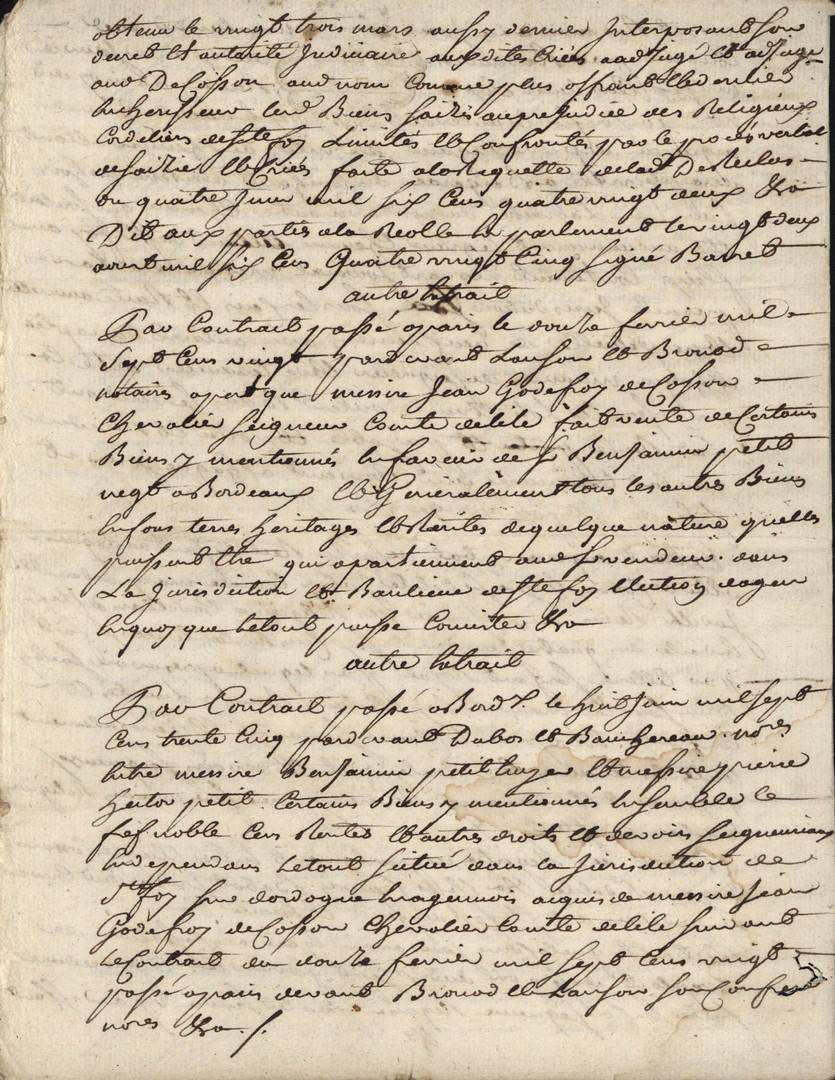 obtenu le vingt trois mars aussy dernier Interposant son
decret et autorité Judiciaire auxdites Criées a adjugé et adjuge
aud DeCosson aud nom Comme plus offrant et dernier
Encherisseur lesd Biens saizis au prejudice des Religieux
Cordeliers de Ste foy Limités et Confrontés par le procés verbal
de saizie et Criés faite a la Requette de lad De Reclus
du quatre Juin mil six Cens quatre vingt deux &ra
Dit aux parties a la Reolle en parlement le vingt deux
aoust mil six Cens Quatre vingt Cinq signé Barret
autre Extrait
Par Contrait passé a paris le douze fevrier mil
Sept Cens vingt pardevant Lanson et Bronod
notaires apert que messire Jean Godefroy de Cosson
Chevalier seigneur Comte de lile fait vente de Certains
Biens y mentionnés En faveur de Sr Benjamin petit
negt a Bordeaux et Generalement tous les autres Biens
En fons terres heritages et Rentes de quelque nature quelles
puissent Etre qui apartiennent aud sr vendeur dans
La Jurisdiction et Banlieue de Ste foy Election dagen
En quoy que Le tout puisse Consister &ra
autre Extrait
Par Contrait passé a Bordx le huit Juin mil sept
Cens trente Cinq pardevant Dubos et Banchereau nores
Entre messire Benjamin petit Ecuyer et messire pierre
hector petit Certains Biens y mentionnés Ensemble le
fief noble Cens Rentes et autres droits et devoirs seigneuriaux
En dependans Le tout situé dans la Jurisdiction de
Ste foy sur dordogne En agennois aquis de messire Jean
Godefroy de Cosson Chevalier Comte de lile suivant
Le Contrait du douze fevrier mil sept Cens vingt
passé a paris devant Bronod et Lanson son Confrere
nores &ra ./.